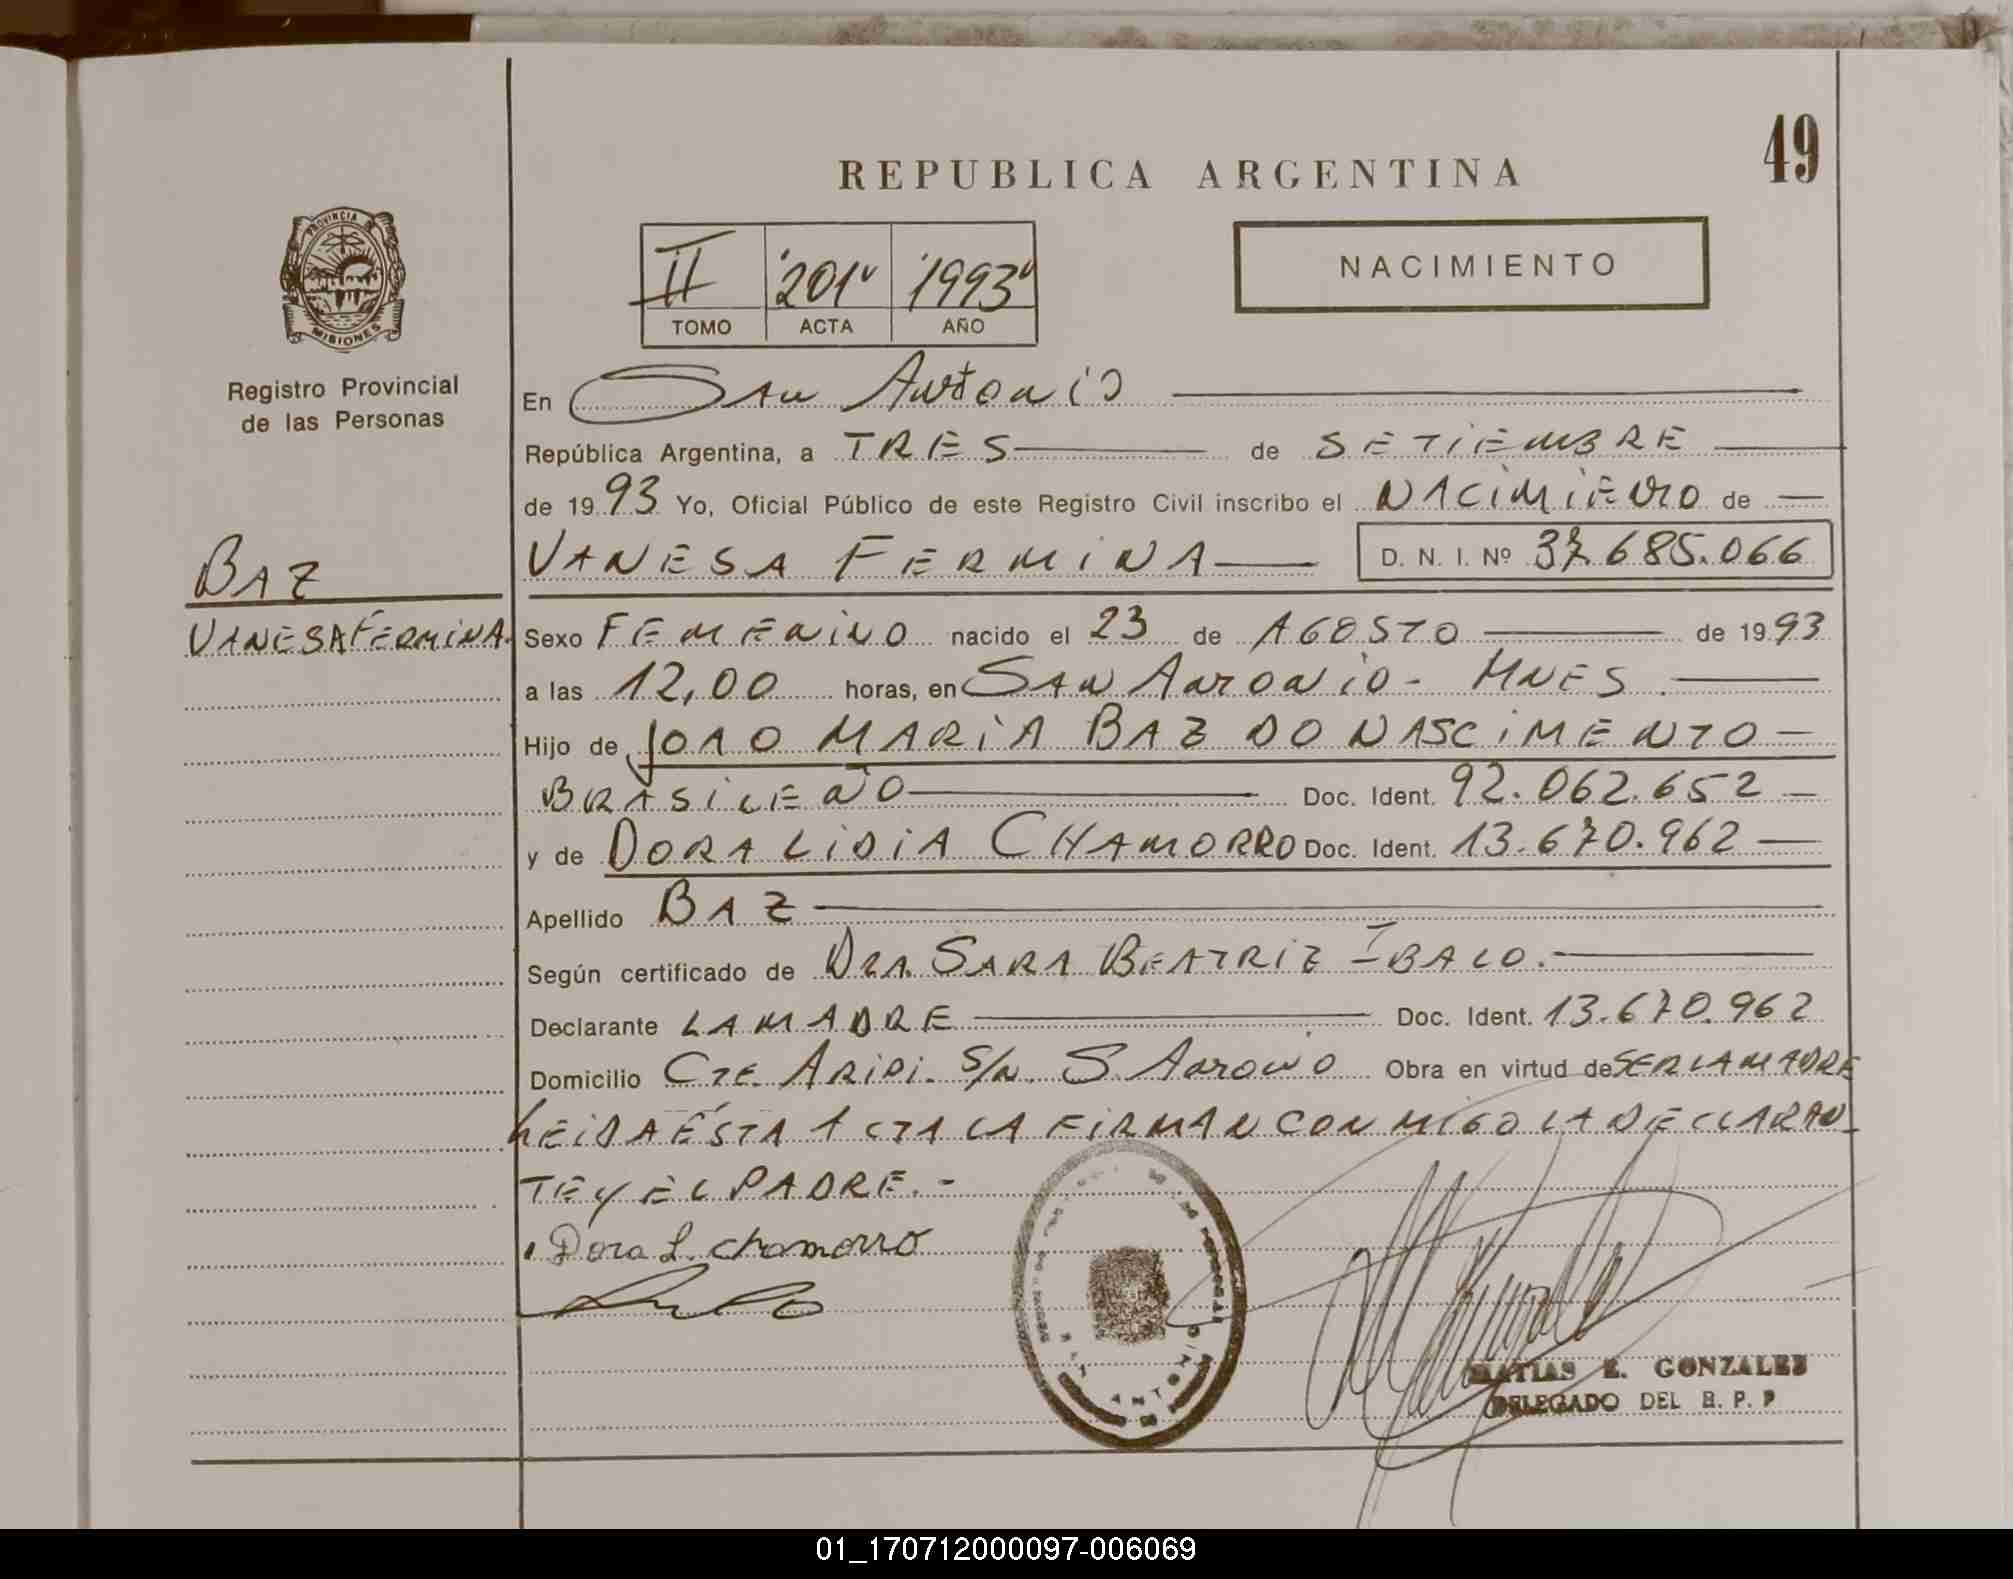 49
REPUBLICA ARGENTINA
PROVINCIA DE
MISIONES
II 201 1993
NACIMIENTO
TOMO ACTA AÑO
Registro Provincial
de las Personas
En San Antonio
República Argentina, a TRES de SETIEMBRE
de 1993 Yo, Oficial Público de este Registro Civil inscribo el NACIMIENTO de
BAZ
VANESA FERMINA D. N. I. Nº 37.685.066
VANESA FERMINA.
Sexo FEMENINO nacido el 23 de AGOSTO de 1993
a las 12,00 horas, en SAN ANTONIO - MNES
Hijo de JOAO MARIA BAZ DO NASCIMENTO
BRASILEÑO Doc. Ident. 92.062.652
y de DORA LIDIA CHAMORRO Doc. Ident. 13.670.962
Apellido BAZ
Según certificado de DRA. SARA BEATRIZ IBALO.
Declarante LA MADRE Doc. Ident. 13.670.962
Domicilio CTE. ARIPI. S/N. S. Antonio Obra en virtud de SER LA MADRE
LEIDA ÉSTA ACTA LA FIRMAN CONMIGO LA DECLARAN_
TE Y EL PADRE. -
Dora L. Chamorro
SAN ANTONIO
MATIAS E. GONZALEZ
DELEGADO DEL R. P. P
01_170712000097-006069